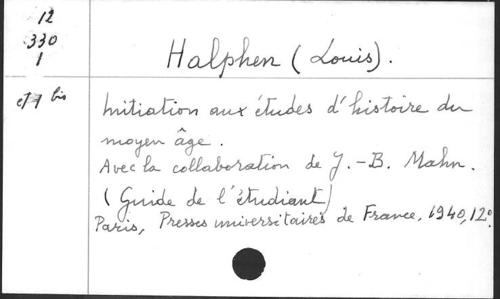 12
330
1
et 1 bis
Halphen (Louis).
Initiation aux études d'histoire du
moyen âge.
Avec la collaboration de J.-B. Mahn.
(Guide de l'étudiant)
Paris, Presses universitaires de France, 1940, 12º.